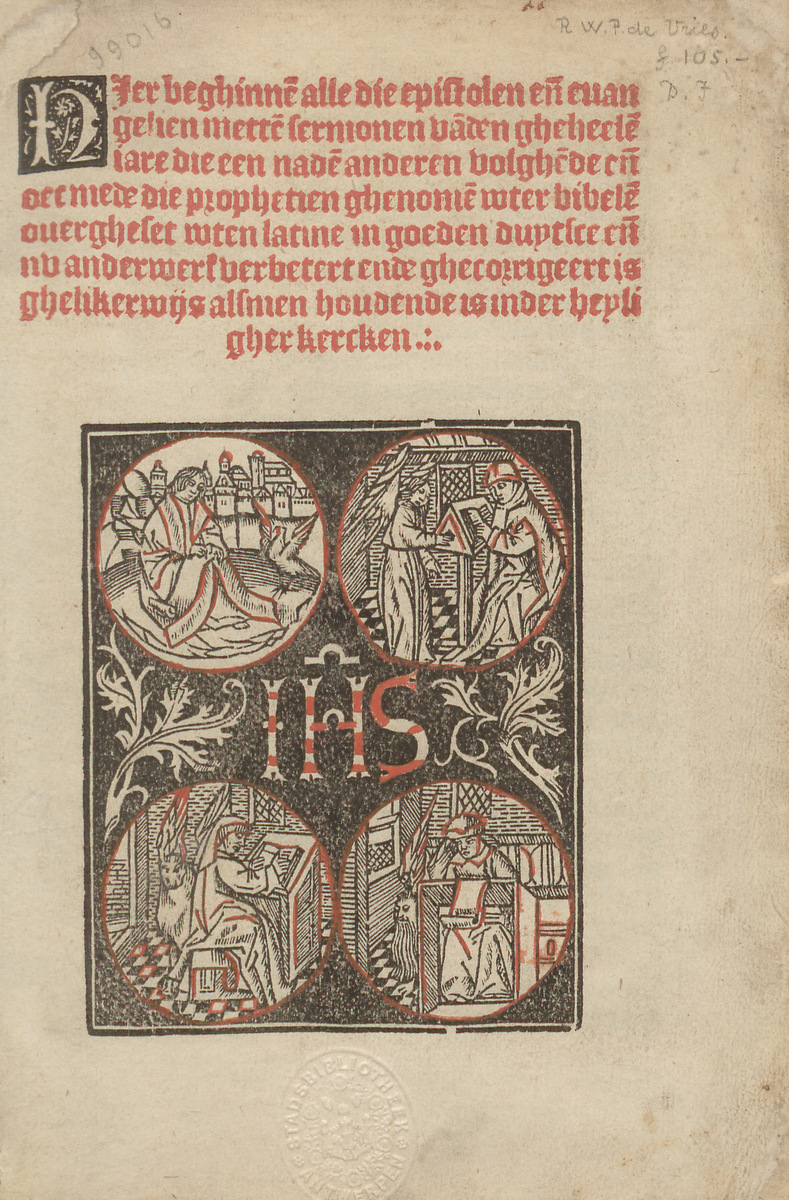 99016
R. W. P. de Vries.
f 105.-
D. J
Hier beghinnē alle die epistolen eñ euan
gelien mettē sermonen vādē gheheelē
iare die een nadē anderen volghēde eñ
oec mede die prophetien ghenomē wter bibelē
ouergheset wten latine in goeden duytsce eñ
nv anderwerf verbetert ende ghecorrigeert is
ghelikerwijs alsmen houdende is inder heyli
gher kercken .:.
IHS
STADSBIBLIOTHEEK
ANTWERPEN